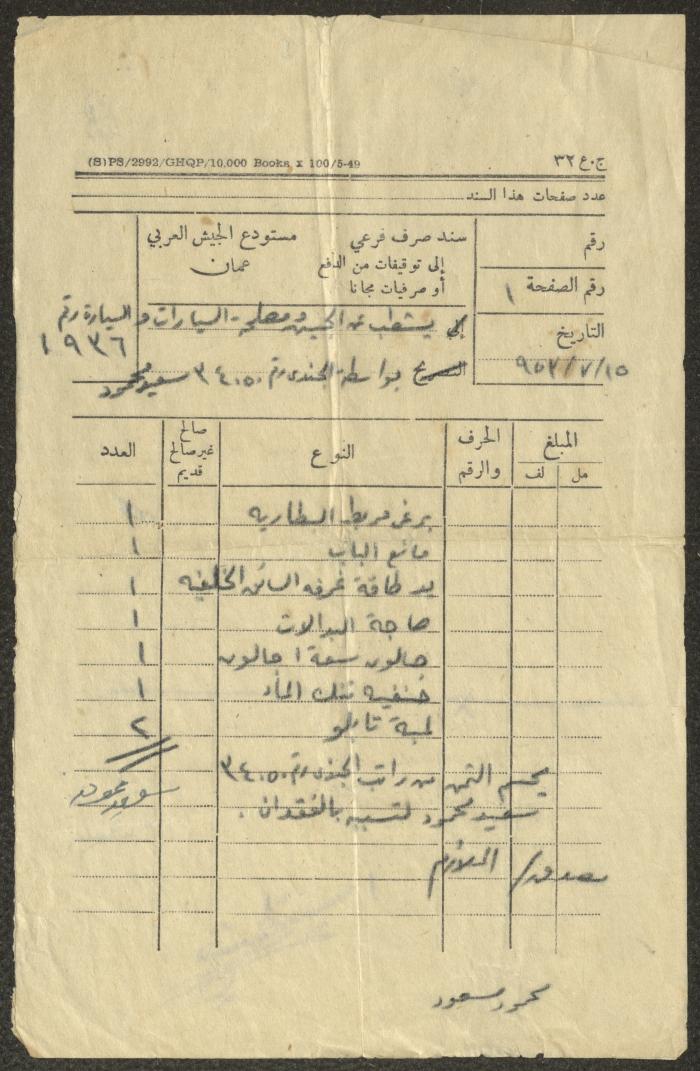 (S)PS/2992/GHQP/10,000 Books x 100/5-49
ج.ع ٣٢
عدد صفحات هذا السند
رقم
سند صرف فرعي
مستودع الجيش العربي
إلى توقيفات من الدفع
عمان
أو صرفيات مجانا
رقم الصفحة ١
إلى يشطب عن الجيش ومصلحة السيارات والسيارة رقم
١٩٣٦
التاريخ
٩٥٢/٧/١٥
بواسطة الجندي رقم ٣٤٠٥٠ سعيد محمود
المبلغ
مل
لف
الحرف والرقم
النوع
صالح غير صالح قديم
العدد
برغي مربط البطاريه ١
مانع الباب ١
يد طاقة غرفه السائق الخلفيه ١
صاجة البدالات ١
جالون سعة ١ جالون ١
حنفيه تنك الماء ١
لمبة تابلو ٢
يحسم الثمن من راتب الجندي رقم ٣٤٠٥٠
سعيد محمود لتسببه بالفقدان .
سعيد محمود
الملازم
محمود مسعود